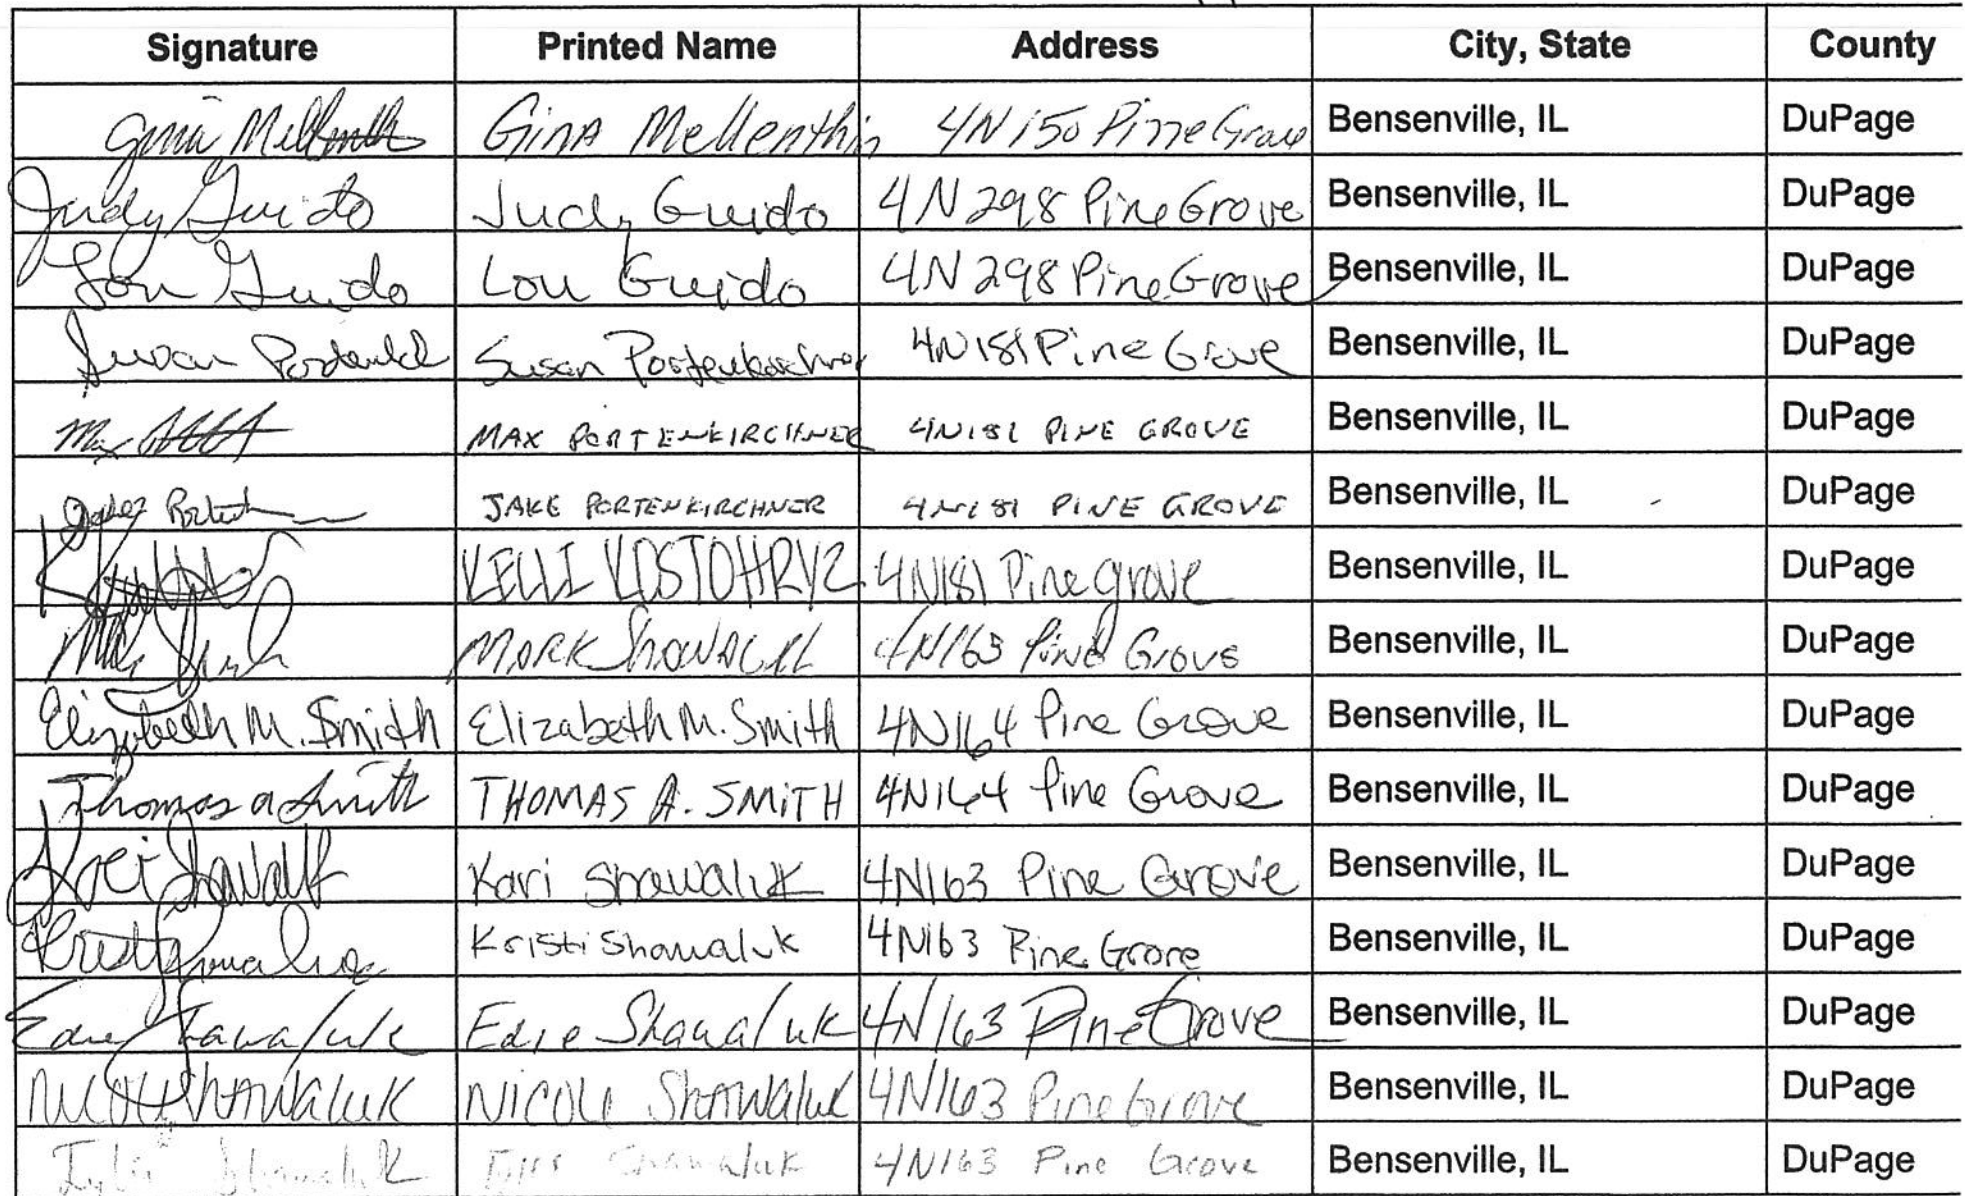 Signature Printed Name Address City, State County
Gina Mellenthin Gina Mellenthin 4N150 Pine Grove Bensenville, IL DuPage
Judy Guido Judy Guido 4N298 Pine Grove Bensenville, IL DuPage
Lou Guido Lou Guido 4N298 Pine Grove Bensenville, IL DuPage
Susan Susan Portenkirchner 4N181 Pine Grove Bensenville, IL DuPage
Max MAX PORTENKIRCHNER 4N181 PINE GROVE Bensenville, IL DuPage
JAKE PORTENKIRCHNER 4N181 PINE GROVE Bensenville, IL DuPage
KELLI KOSTOHRYZ 4N181 Pine grove Bensenville, IL DuPage
MARK Shawaluk 4N163 Pine Grove Bensenville, IL DuPage
Elizabeth M. Smith Elizabeth M. Smith 4N164 Pine Grove Bensenville, IL DuPage
Thomas a Smith THOMAS A. SMITH 4N164 Pine Grove Bensenville, IL DuPage
Kari Shawaluk Kari Shawaluk 4N163 Pine Grove Bensenville, IL DuPage
Kristi Shawaluk Kristi Shawaluk 4N163 Pine Grove Bensenville, IL DuPage
Edie Shawaluk Edie Shawaluk 4N163 Pine Grove Bensenville, IL DuPage
Nicole Shawaluk Nicole Shawaluk 4N163 Pine Grove Bensenville, IL DuPage
Tyler Shawaluk Tyler Shawaluk 4N163 Pine Grove Bensenville, IL DuPage